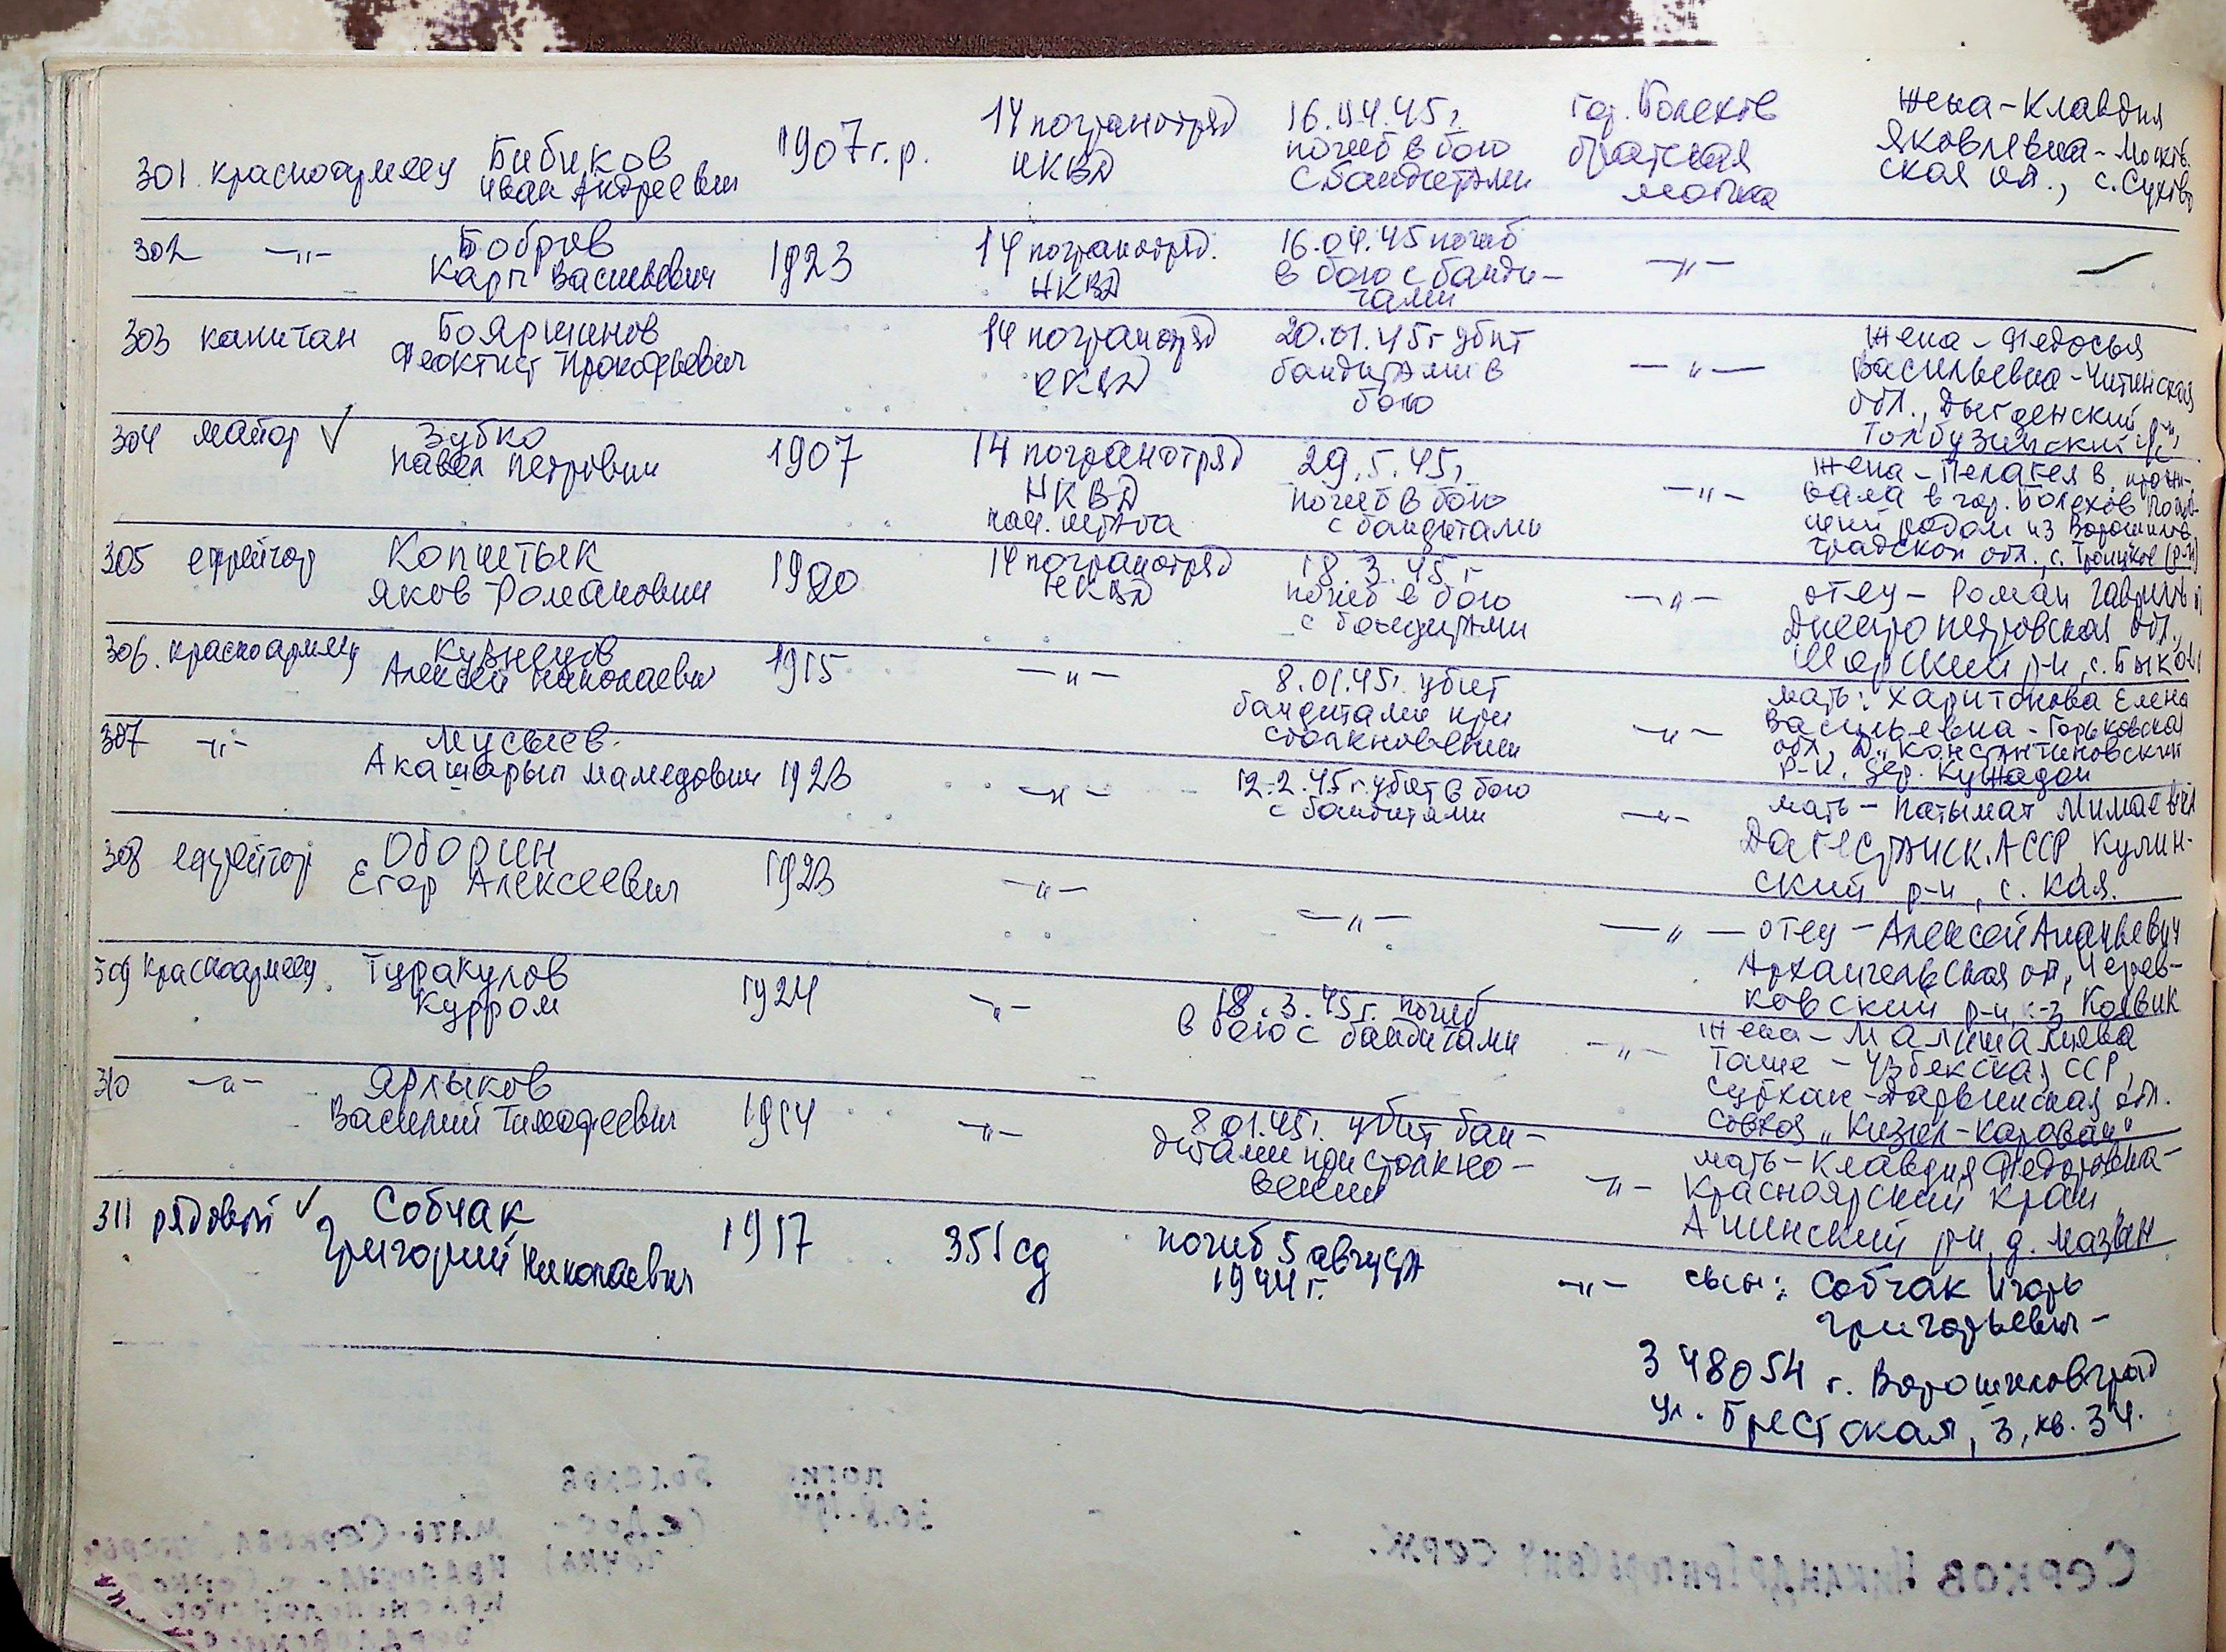 301. красноармеец Бибиков 1907 г.р. 14 погранотряд 16.04.45 г. гор. Болехов жена - Клавдия
Иван Андреевич НКВД погиб в бою братская Яковлевна - Москов
с бандитами могила ская обл., с.
302 —"— Бобров 1923 14 погранотряд. 16.04.45 погиб —"— —
Карп Васильевич НКВД в бою с банди-
тами
303 капитан Бояршинов 14 погранотряд 20.01.45 г убит —"— жена - Федосья
Феоктист Прокофьевич НКВД бандитами в Васильевна - Читинская
бою обл.,
304 майор ✓ Зубко 1907 14 погранотряд 29.5.45 г. —"— жена - Пелагея В. прожи-
Павел Петрович НКВД погиб в бою вала в гор. Болехов
нач. штаба с бандитами родом из Ворошилов
градской обл., с. Троицкое (р-н)
305 ефрейтор Копштык 1920 14 погранотряд 18.3.45 г —"— отец - Роман
Яков Романович НКВД погиб в бою Днепропетровская обл.,
с бандитами р-н, с.
306. красноармеец Кузнецов 1915 —"— 8.01.45 г. убит —"— мать: Харитонова Елена
Алексей Николаевич бандитами при Васильевна - Горьковская
столкновении обл., Д. Константиновский
р-н, дер.
307 —"— Мусыев 1923 —"— 12.2.45 г. убит в бою —"— мать - Патымат
Акашарып Мамедович с бандитами Дагестанск. АССР, Кулин-
ский р-н, с. Кая.
308 ефрейтор Оборин 1923 —"— —"— —"— отец - Алексей Ананьевич
Егор Алексеевич Архангельская обл, Черев-
ковский р-н, к-з
309 красноармеец Туракулов 1924 —"— 18.3.45 г. погиб —"— жена -
Курром в бою с бандитами Таше - Узбекская ССР,
Сурхан-Дарьинская обл.
совхоз „Кизил-Караван"
310 —"— Ярлыков 1914 —"— 8.01.45 г. убит бан- —"— мать - Клавдия Федоровна -
Василий Тимофеевич дитами при столкно- Красноярский край
вении Ачинский р-н, д.
311 рядовой ✓ Собчак 1917 351 сд погиб 5 августа —"— сын: Собчак Игорь
Григорий Николаевич 1944 г. Григорьевич -
348054 г. Ворошиловград
ул. Брестская, 3, кв. 34.